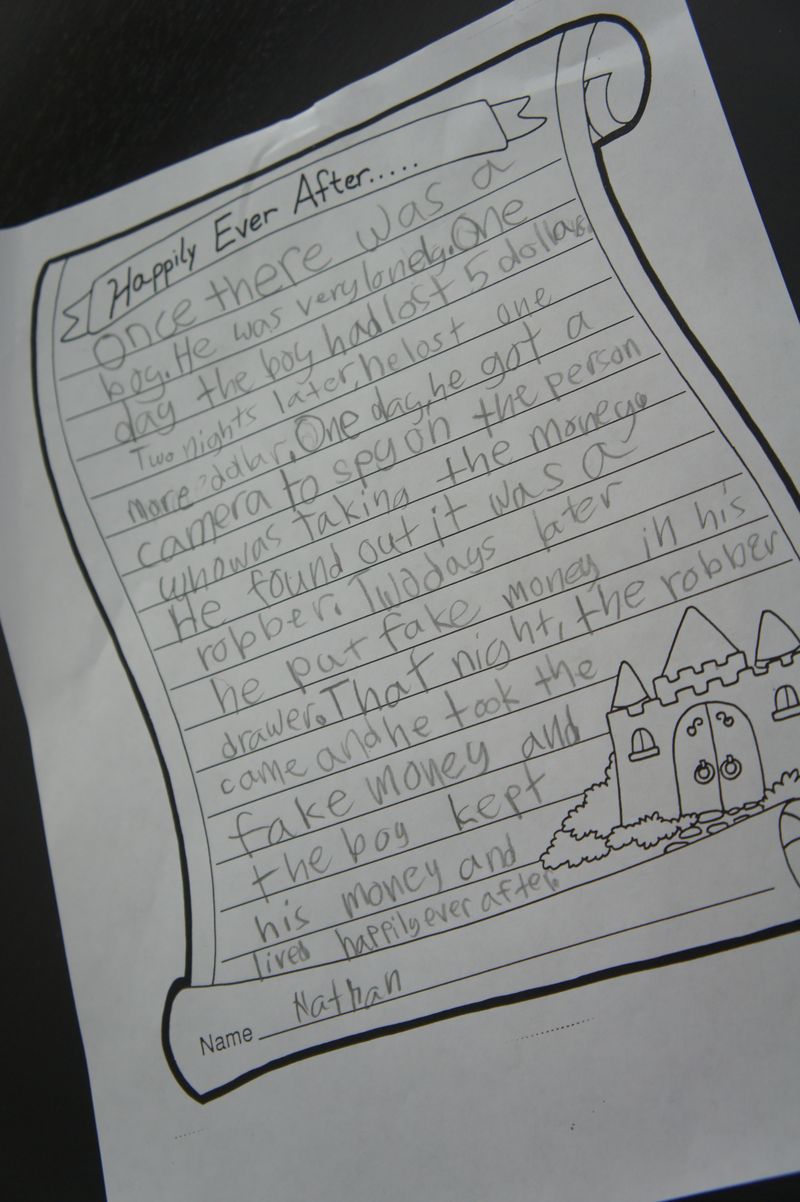 Happily Ever After.....
Once there was a
boy. He was very lonely. One
day the boy had lost 5 dollars.
Two nights later, he lost one
more dollar. One day, he got a
camera to spy on the person
who was taking the money.
He found out it was a
robber. Two days later
he put fake money in his
drawer. That night, the robber
came and he took the
fake money and
the boy kept
his money and
lived happily ever after.
Name Nathan